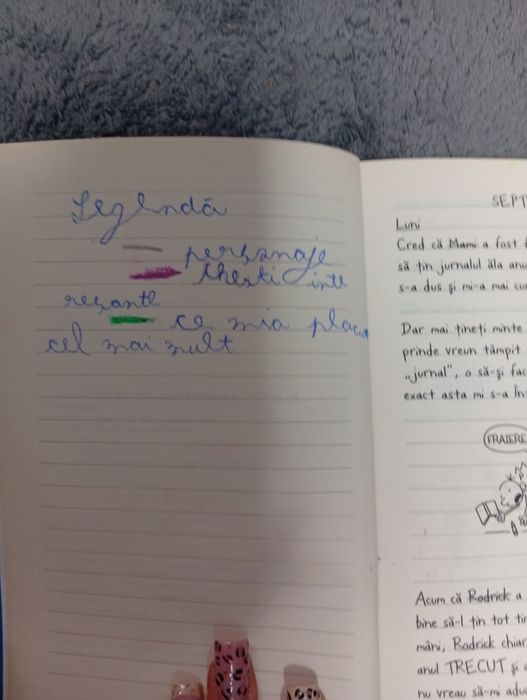 Legendă
personaje
chesti inte
resante
ce mia placut
cel mai mult
SEPT
Luni
Cred că Mami a fost
să țin jurnalul ăla anu
s-a dus și mi-a mai cu
Dar mai țineți minte
prinde vreun tâmpit
„jurnal”, o să-și fac
exact asta mi s-a în
FRAIERE
Acum că Rodrick a
bine să-l țin tot ti
mâni, Rodrick chiar
anul TRECUT și
nu vreau să-mi adu